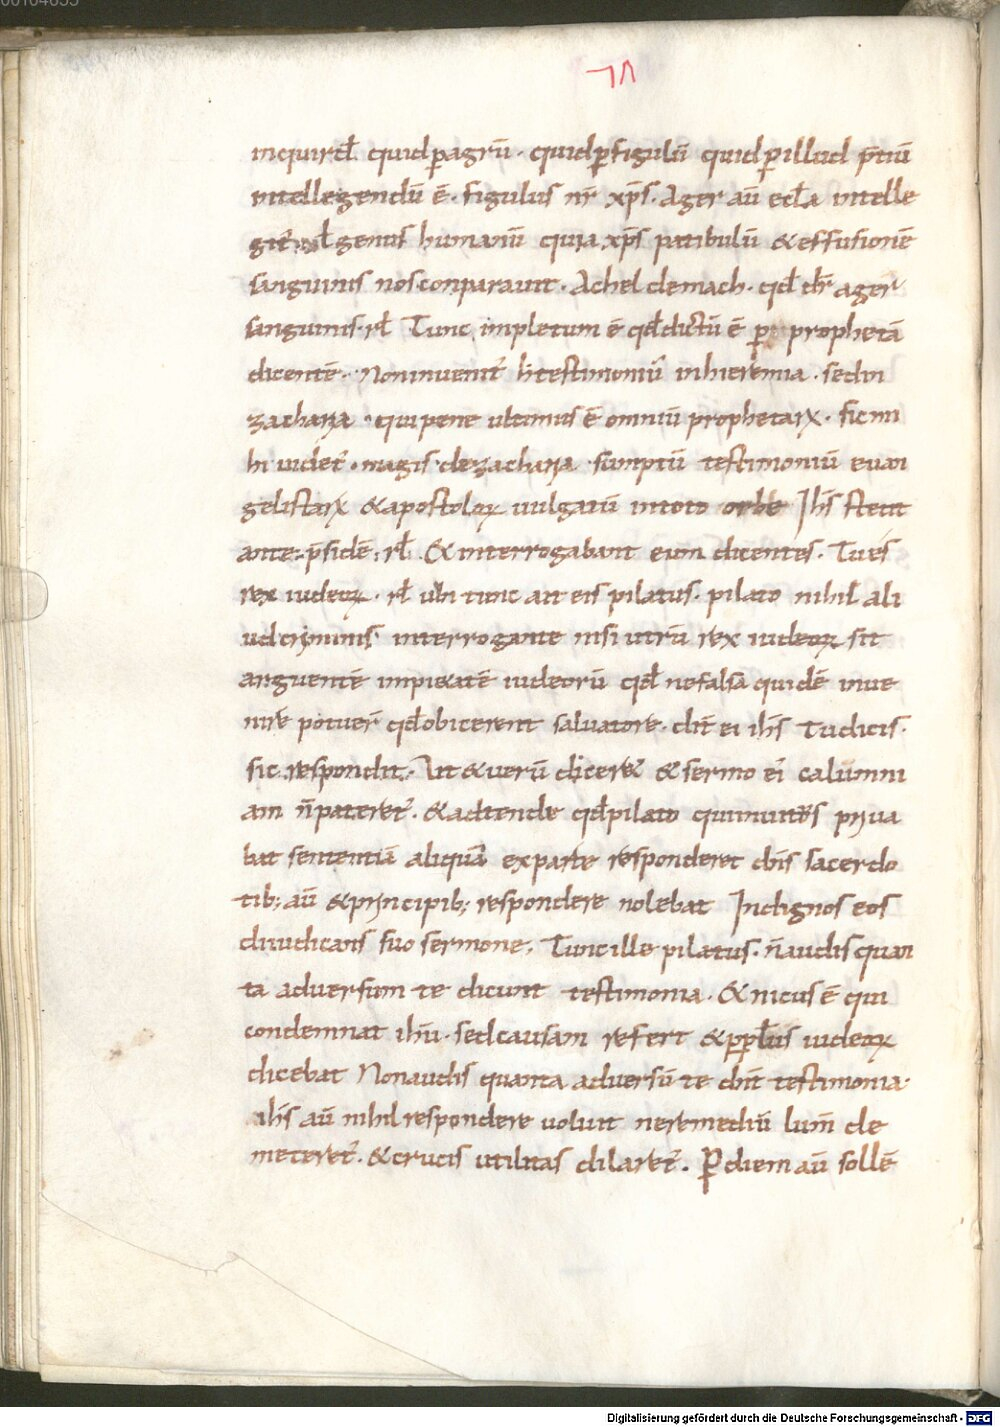 inquirđ. quid p agrū · quid p figulū quid p illud p̄tiū
intellegendū ē · figulus nr̄ xp̄s · Ager aū eccła intelle
git̄ uł genus humanū quia xp̄s patibulū & effusionē
sanguinis nos conparauit · Achel demach · qđ dr̄ ager
sanguinis · rł Tunc impletum ē qđ dictū ē per prophetā
dicentē · Non inuenit̄ h testimoniū in hieremia · sed in
zacharia · qui pene ultimus ē omniū prophetaꝝ · sic mi
hi uidet̄ · magis de zacharia sumptū testimoniū euan
gelistaꝝ & apostoloꝝ uulgatū in toto orbe Ihs̄ stetit
ante p̄sidē · rł · & interrogabant eum dicentes · Tu es
rex iudeoꝝ · rł tunc ait eis pilatus · pilato nihil ali
ud criminis interrogante nisi utrū rex iudeoꝝ sit
arguentē impietatē iudeorū qđ ne falsa quidē inue
nire potuer̄ qđ obicerent saluatore · dn̄t ei ihs̄ Tu dicis ·
sic respondit · Ut & uerū diceret & sermo ei calumni
am n̄ pateret̄ · & adtende qđ pilato qui inuitus priua
bat sententiā aliquā ex parte responderet dn̄s sacerdo
tib; aū & principib; respondere nolebat Indignos eos
diiudicans suo sermone · Tunc ille pilatus · n̄ audis quan
ta aduersum te dicunt testimonia · & nicus ē qui
condemnat ihm̄ · sed causam refert & p pplūs iudeoꝝ
dicebat Non audis quanta aduersū te dn̄t testimonia ·
ihs̄ aū nihil respondere uoluit ne remediū lum̄ de
meteret̄ · & crucis utilitas dilaret̄ · P diem aū sollē
Digitalisierung gefördert durch die Deutsche Forschungsgemeinschaft - DFG